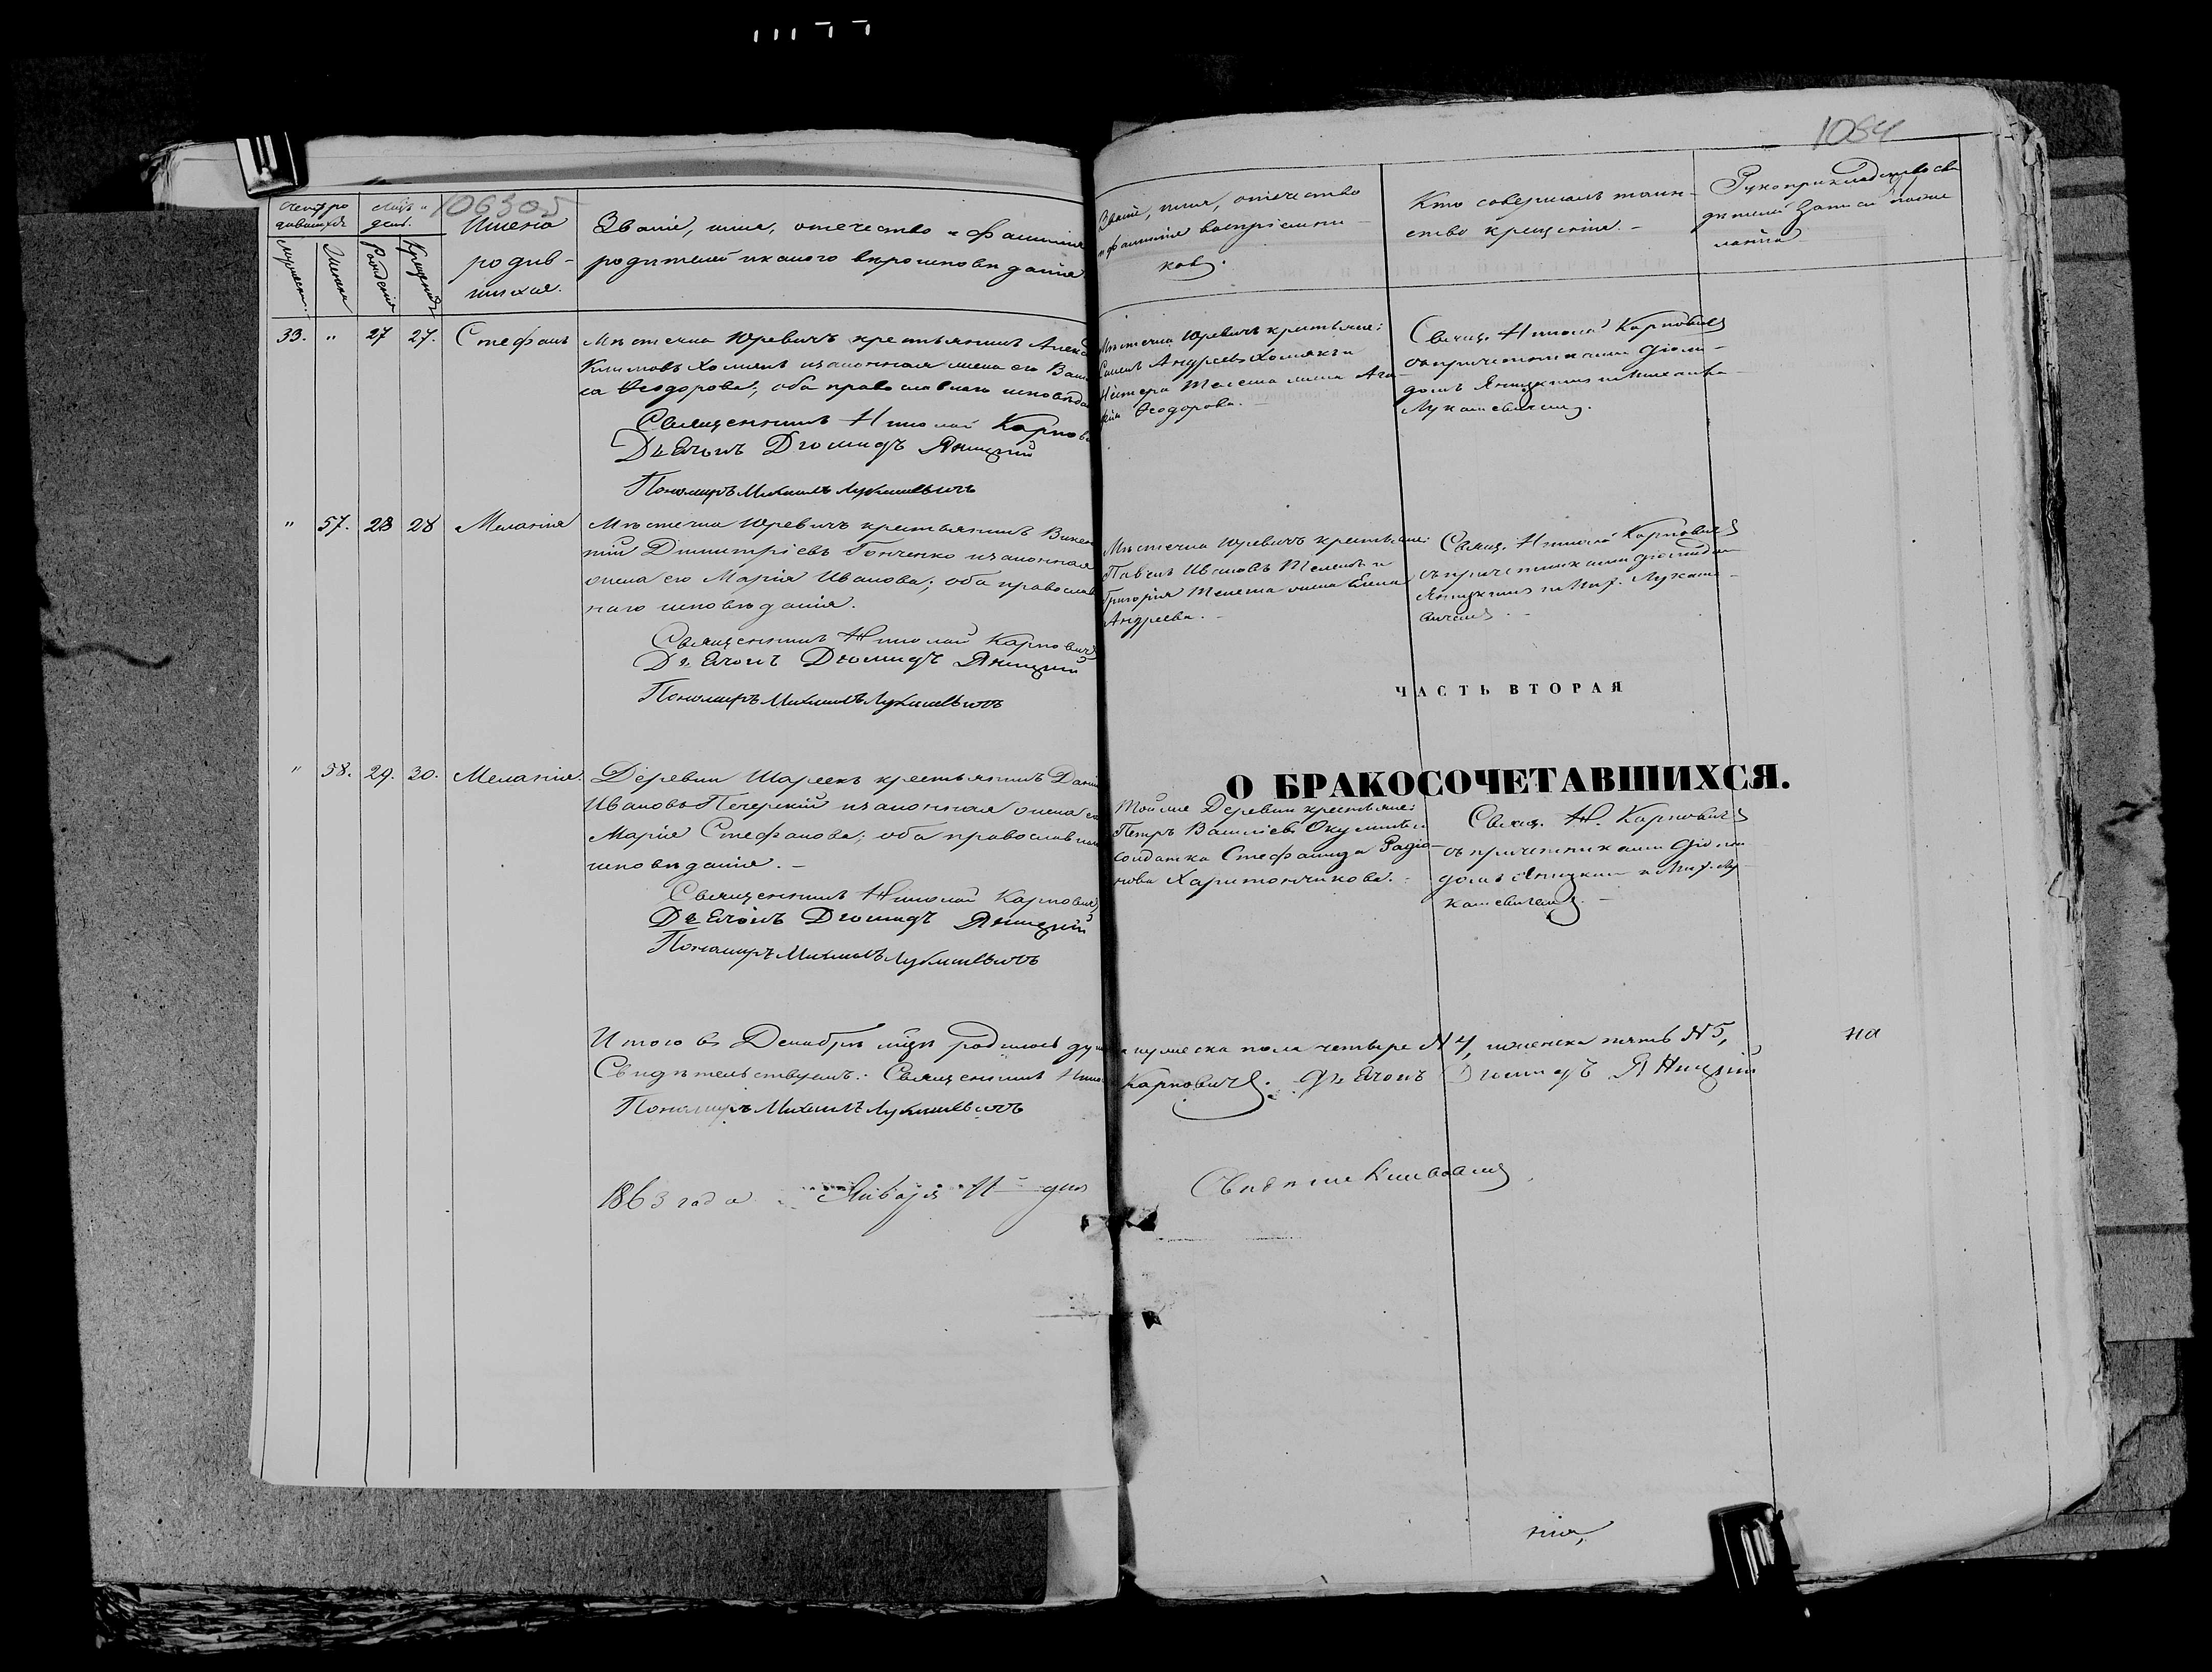 1084
106305
Счетъ ро
дившихся
Мѣс. и
день.
Имена
родив-
шихся.
Званіе, имя, отечество и фамилія
родителей и какого вѣроисповѣданія
Званіе, имя, отечество
и фамилія воспріемни-
ковъ.
Кто совершалъ таин-
ство крещенія.
Рукоприкладство сви
дѣтелей записи по же
ланію
Рожденія
Крещенія
33. " 27 27. Стефанъ
Мѣстечка Юревичъ крестьянинъ
Климовъ Хомякъ и законная жена его
Ѳеодорова; оба православнаго исповѣда
Священникъ Николай Карпов
Дьячокъ Дiомидъ Яницкій
Пономарь Михаилъ Лукашевичъ
Мѣстечка Юревичъ крестьяне:
Андреевъ Хомякъ и
Нестера Телеша жена Ага-
Ѳеодорова.
Свящ. Николай Карповичъ
съ причетниками Діоми-
домъ Яницкимъ и Михаиломъ
Лукашевичемъ.
" 57. 28 28 Меланія
Мѣстечка Юревичъ крестьянинъ Викен
тій Димитріевъ Гонченко и законная
жена его Марія Иванова; оба православ
наго исповѣданія.
Священникъ Николай Карповичъ
Дьячокъ Діомидъ Яницкій
Пономарь Михаилъ Лукашевичъ
Мѣстечка Юревичъ крестьяне:
Павелъ Ивановъ Телешъ и
Григорія Телеша жена Елена
Андреева.
Свящ. Николай Карповичъ
съ причетниками Діомидомъ
Яницкимъ и Мих. Лукаше-
вичемъ
ЧАСТЬ ВТОРАЯ
О БРАКОСОЧЕТАВШИХСЯ.
" 58. 29. 30. Меланія.
Деревни Шареекъ крестьянинъ Дани
Ивановъ Печерскій и законная жена его
Марія Стефанова; оба православнаго
исповѣданія.
Священникъ Николай Карповичъ
Дьячокъ Діомидъ Яницкій
Пономарь Михаилъ Лукашевичъ
Той же Деревни крестьяне:
Петръ Василіевъ
солдатка Стефанида Радіо-
нова Харитончикова.
Свящ. Н. Карповичъ
съ причетниками Діоми
домъ Яницкимъ и Мих. Лу
кашевичемъ.
Итого въ Декабрѣ мѣсяцѣ родилось душъ мужеска пола четыре N 4, женска пять N 5,
на
Свидѣтельствуемъ: Священникъ Нико Карповичъ. Дьячокъ Діомидъ Яницкій
Пономарь Михаилъ Лукашевичъ
1863 года Января 11 дня
нія,